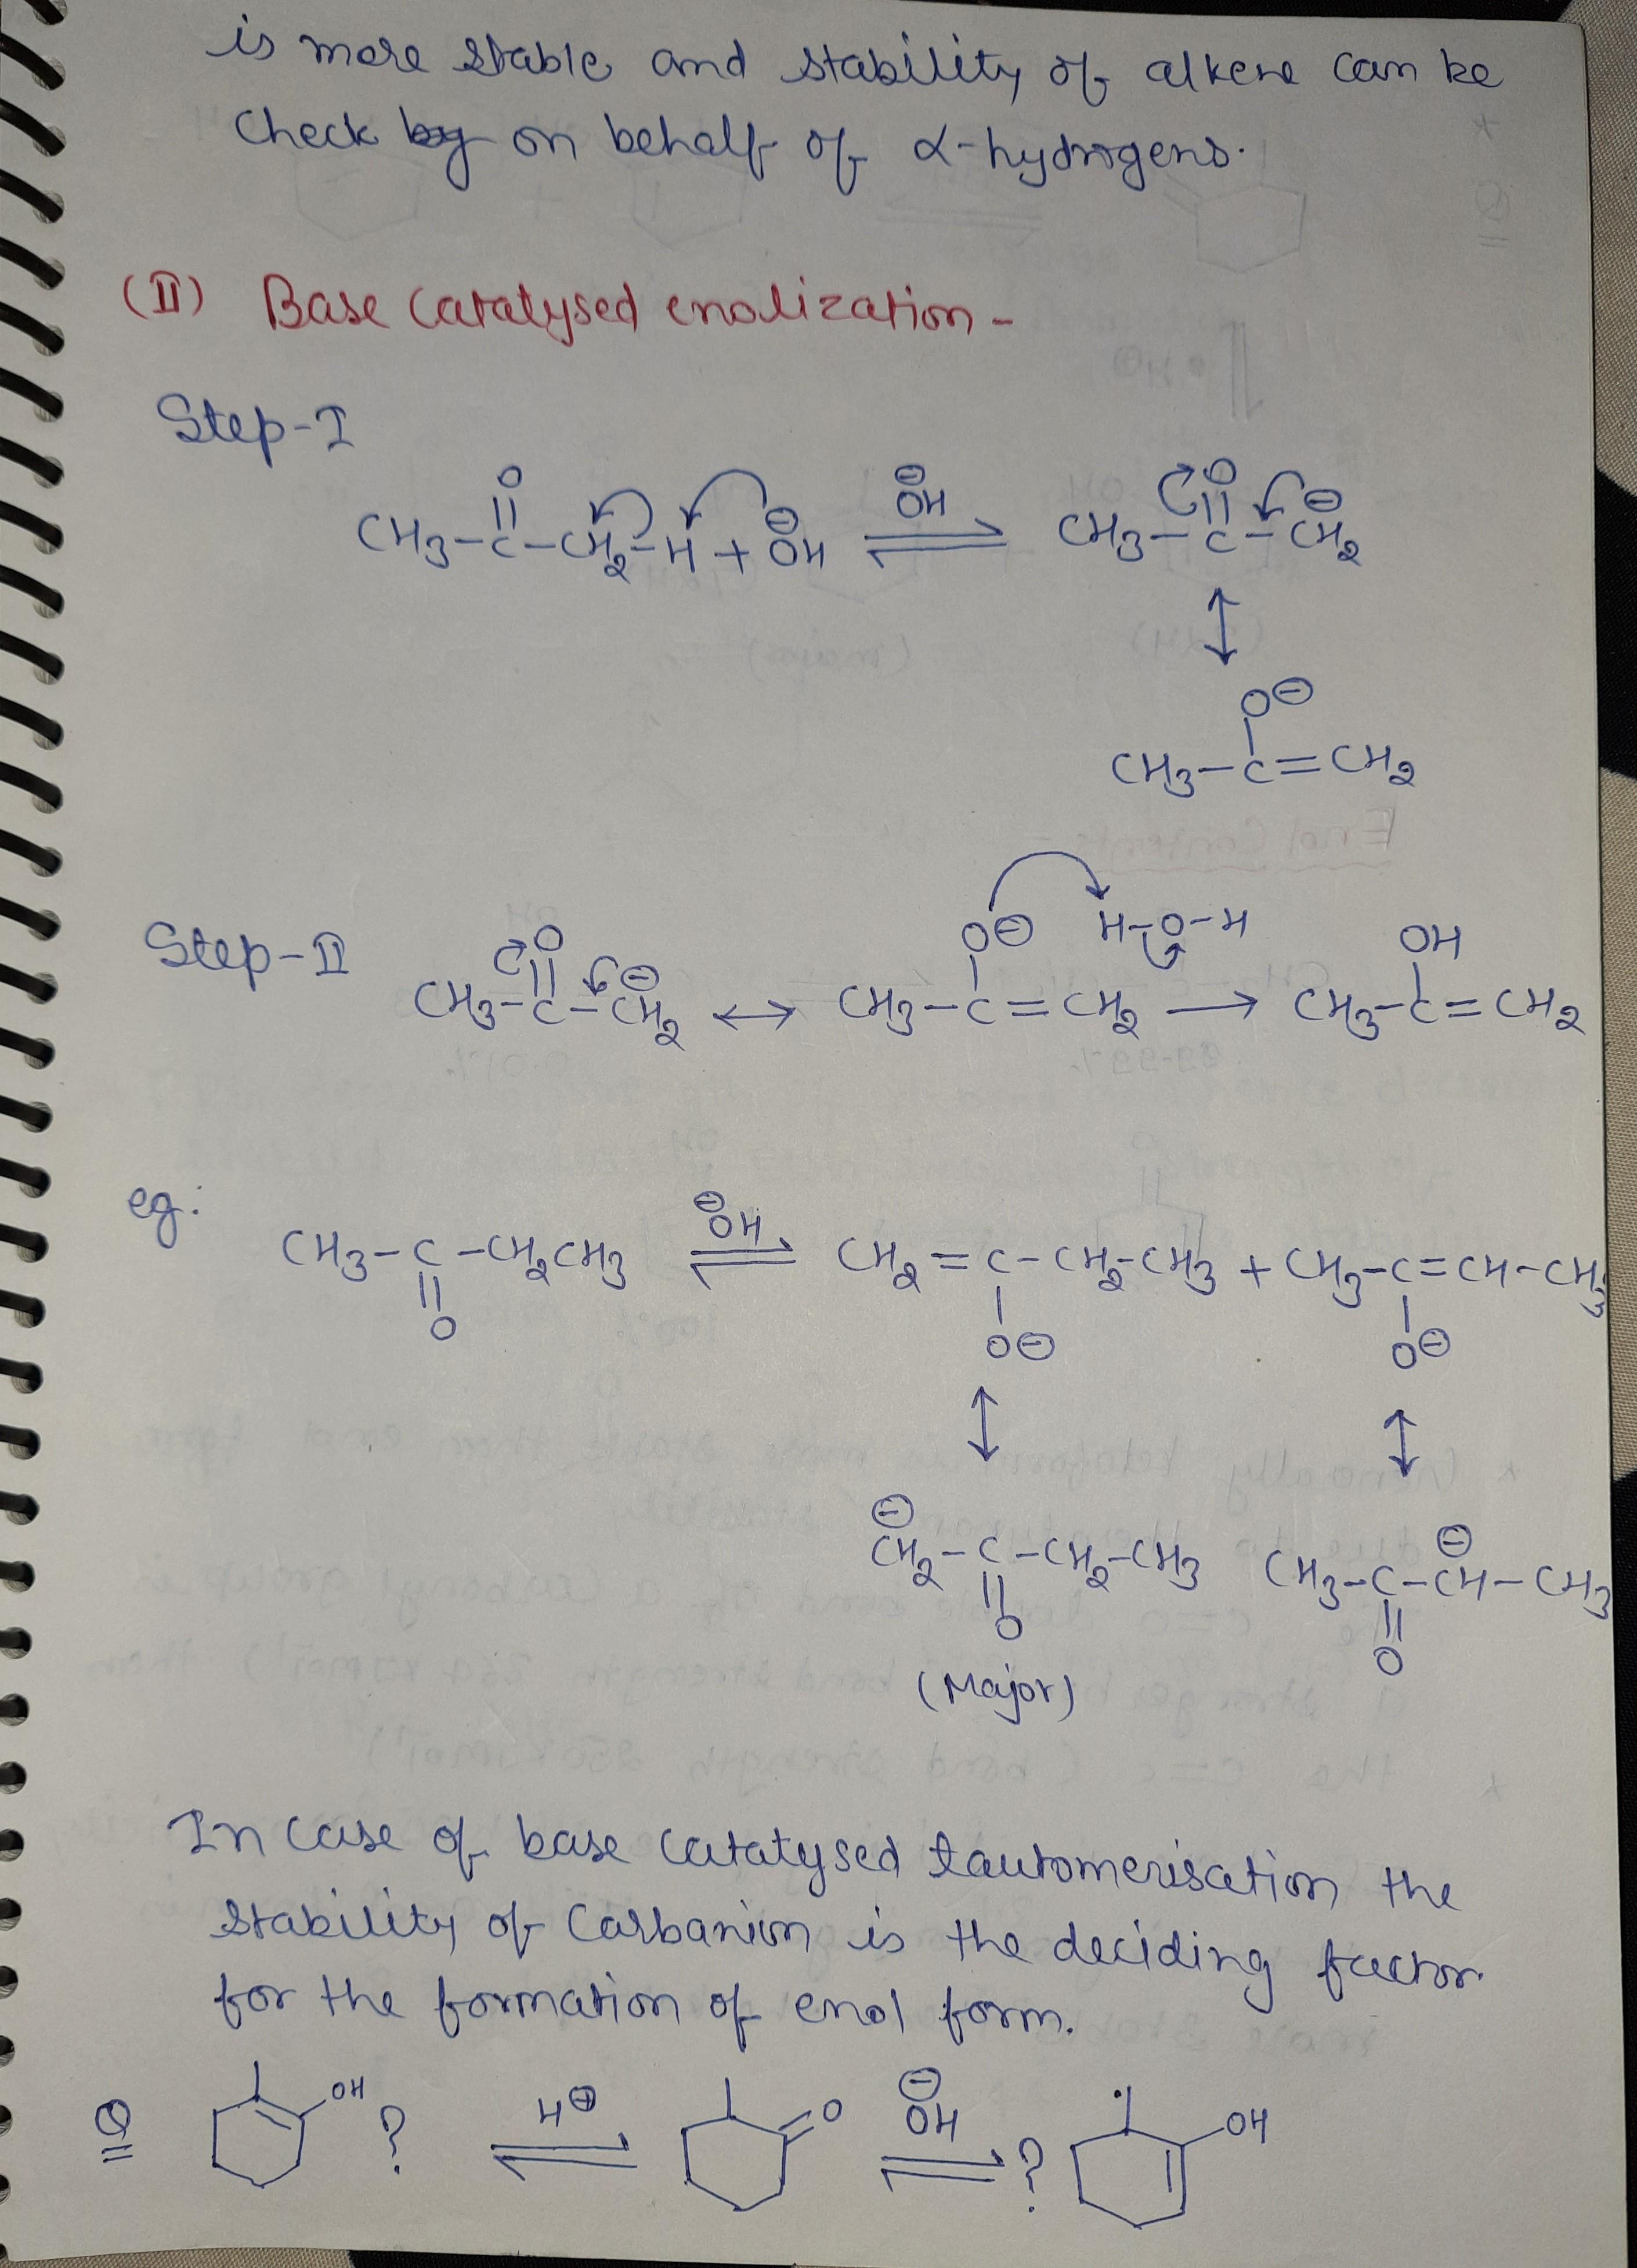 is more stable and stability of alkene can be
check by on behalf of α-hydrogens.
(II) Base catalysed enolization -
Step-I
O O⊖H O
CH3-C-CH2-H + ⊖OH ⇌ CH3-C-CH2⊖
↕
O⊖
CH3-C=CH2
Step-II
O O⊖ H-O-H OH
CH3-C-CH2⊖ ↔ CH3-C=CH2 → CH3-C=CH2
eg:
⊖OH
CH3-C-CH2CH3 ⇌ CH2=C-CH2-CH3 + CH3-C=CH-CH3
O O⊖ O⊖
↕ ↕
⊖CH2-C-CH2-CH3 CH3-C-CH⊖-CH3
O O
(Major)
In case of base catatysed tautomerisation the
stability of Carbanion is the deciding factor
for the formation of enol form.
Q OH ? H⊕ ⇌ O ⊖OH ⇌ ? OH